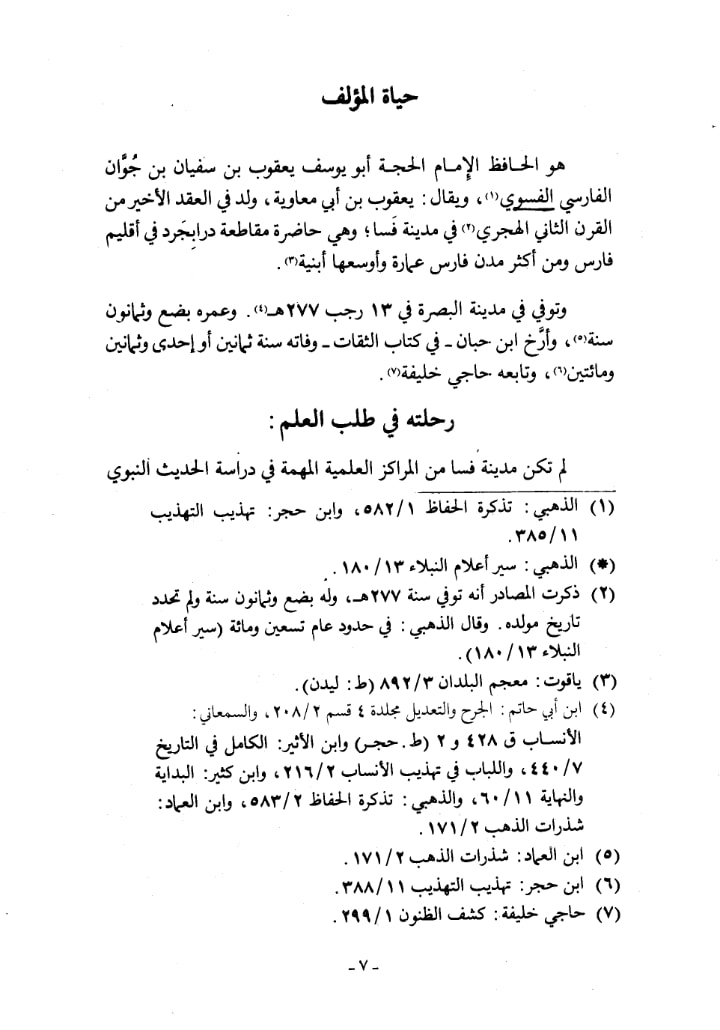 حياة المؤلف
هو الحافظ الإمام الحجة أبو يوسف يعقوب بن سفيان بن جُوَّان
الفارسي الفسوي(١)، ويقال: يعقوب بن أبي معاوية، ولد في العقد الأخير من
القرن الثاني الهجري(٢) في مدينة فَسا؛ وهي حاضرة مقاطعة درابِجَرد في أقليم
فارس ومن أكثر مدن فارس عمارة وأوسعها أبنية(٣).
وتوفي في مدينة البصرة في ١٣ رجب ٢٧٧هـ(٤). وعمره بضع وثمانون
سنة(٥)، وأرَّخ ابن حبان ـ في كتاب الثقات ـ وفاته سنة ثمانين أو إحدى وثمانين
ومائتين(٦)، وتابعه حاجي خليفة(٧).
رحلته في طلب العلم:
لم تكن مدينة فسا من المراكز العلمية المهمة في دراسة الحديث النبوي
(١) الذهبي: تذكرة الحفاظ ٥٨٢/١، وابن حجر: تهذيب التهذيب
٣٨٥/١١.
(*) الذهبي: سير أعلام النبلاء ١٨٠/١٣.
(٢) ذكرت المصادر أنه توفي سنة ٢٧٧هـ، وله بضع وثمانون سنة ولم تحدد
تاريخ مولده. وقال الذهبي: في حدود عام تسعين ومائة (سير أعلام
النبلاء ١٨٠/١٣).
(٣) ياقوت: معجم البلدان ٨٩٢/٣ (ط: ليدن).
(٤) ابن أبي حاتم: الجرح والتعديل مجلدة ٤ قسم ٢٠٨/٢، والسمعاني:
الأنساب ق ٤٢٨ و ٢ (ط. حجر) وابن الأثير: الكامل في التاريخ
٤٤٠/٧، واللباب في تهذيب الأنساب ٢١٦/٢، وابن كثير: البداية
والنهاية ٦٠/١١، والذهبي: تذكرة الحفاظ ٥٨٣/٢، وابن العماد:
شذرات الذهب ١٧١/٢.
(٥) ابن العماد: شذرات الذهب ١٧١/٢.
(٦) ابن حجر: تهذيب التهذيب ٣٨٨/١١.
(٧) حاجي خليفة: كشف الظنون ٢٩٩/١.
ـ ٧ ـ